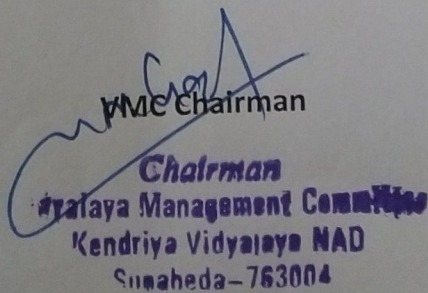 VMC Chairman
Chairman
Vidyalaya Management Committee
Kendriya Vidyalaya NAD
Sunabeda-763004